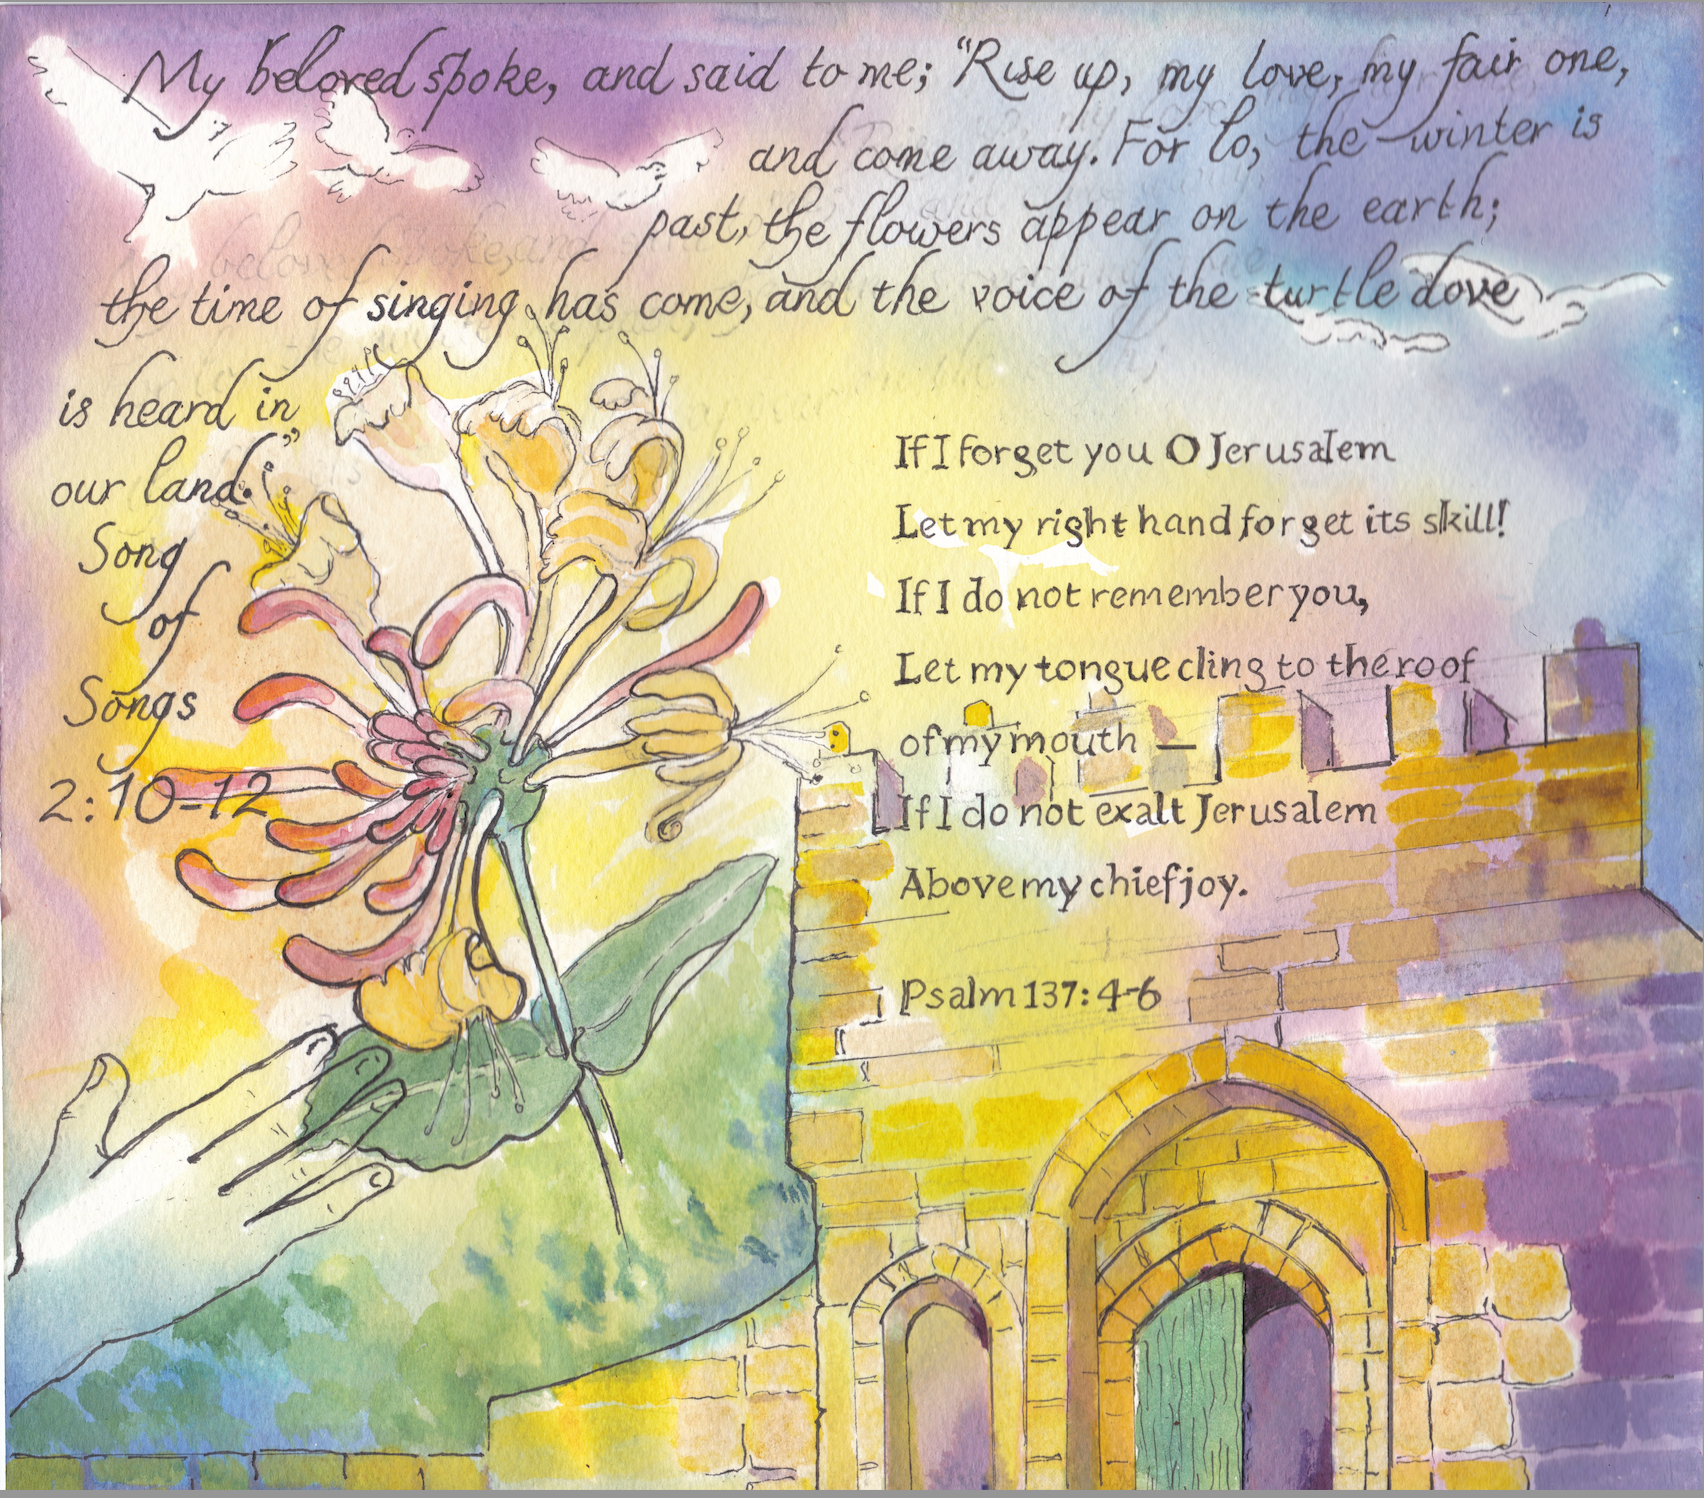 My beloved spoke, and said to me; "Rise up, my love, my fair one,
and come away. For lo, the winter is
past, the flowers appear on the earth;
the time of singing has come, and the voice of the turtle dove
is heard in
our land."
Song
of
Songs
2:10-12
If I forget you O Jerusalem
Let my right hand forget its skill!
If I do not remember you,
Let my tongue cling to the roof
of my mouth —
If I do not exalt Jerusalem
Above my chief joy.
Psalm 137: 4-6